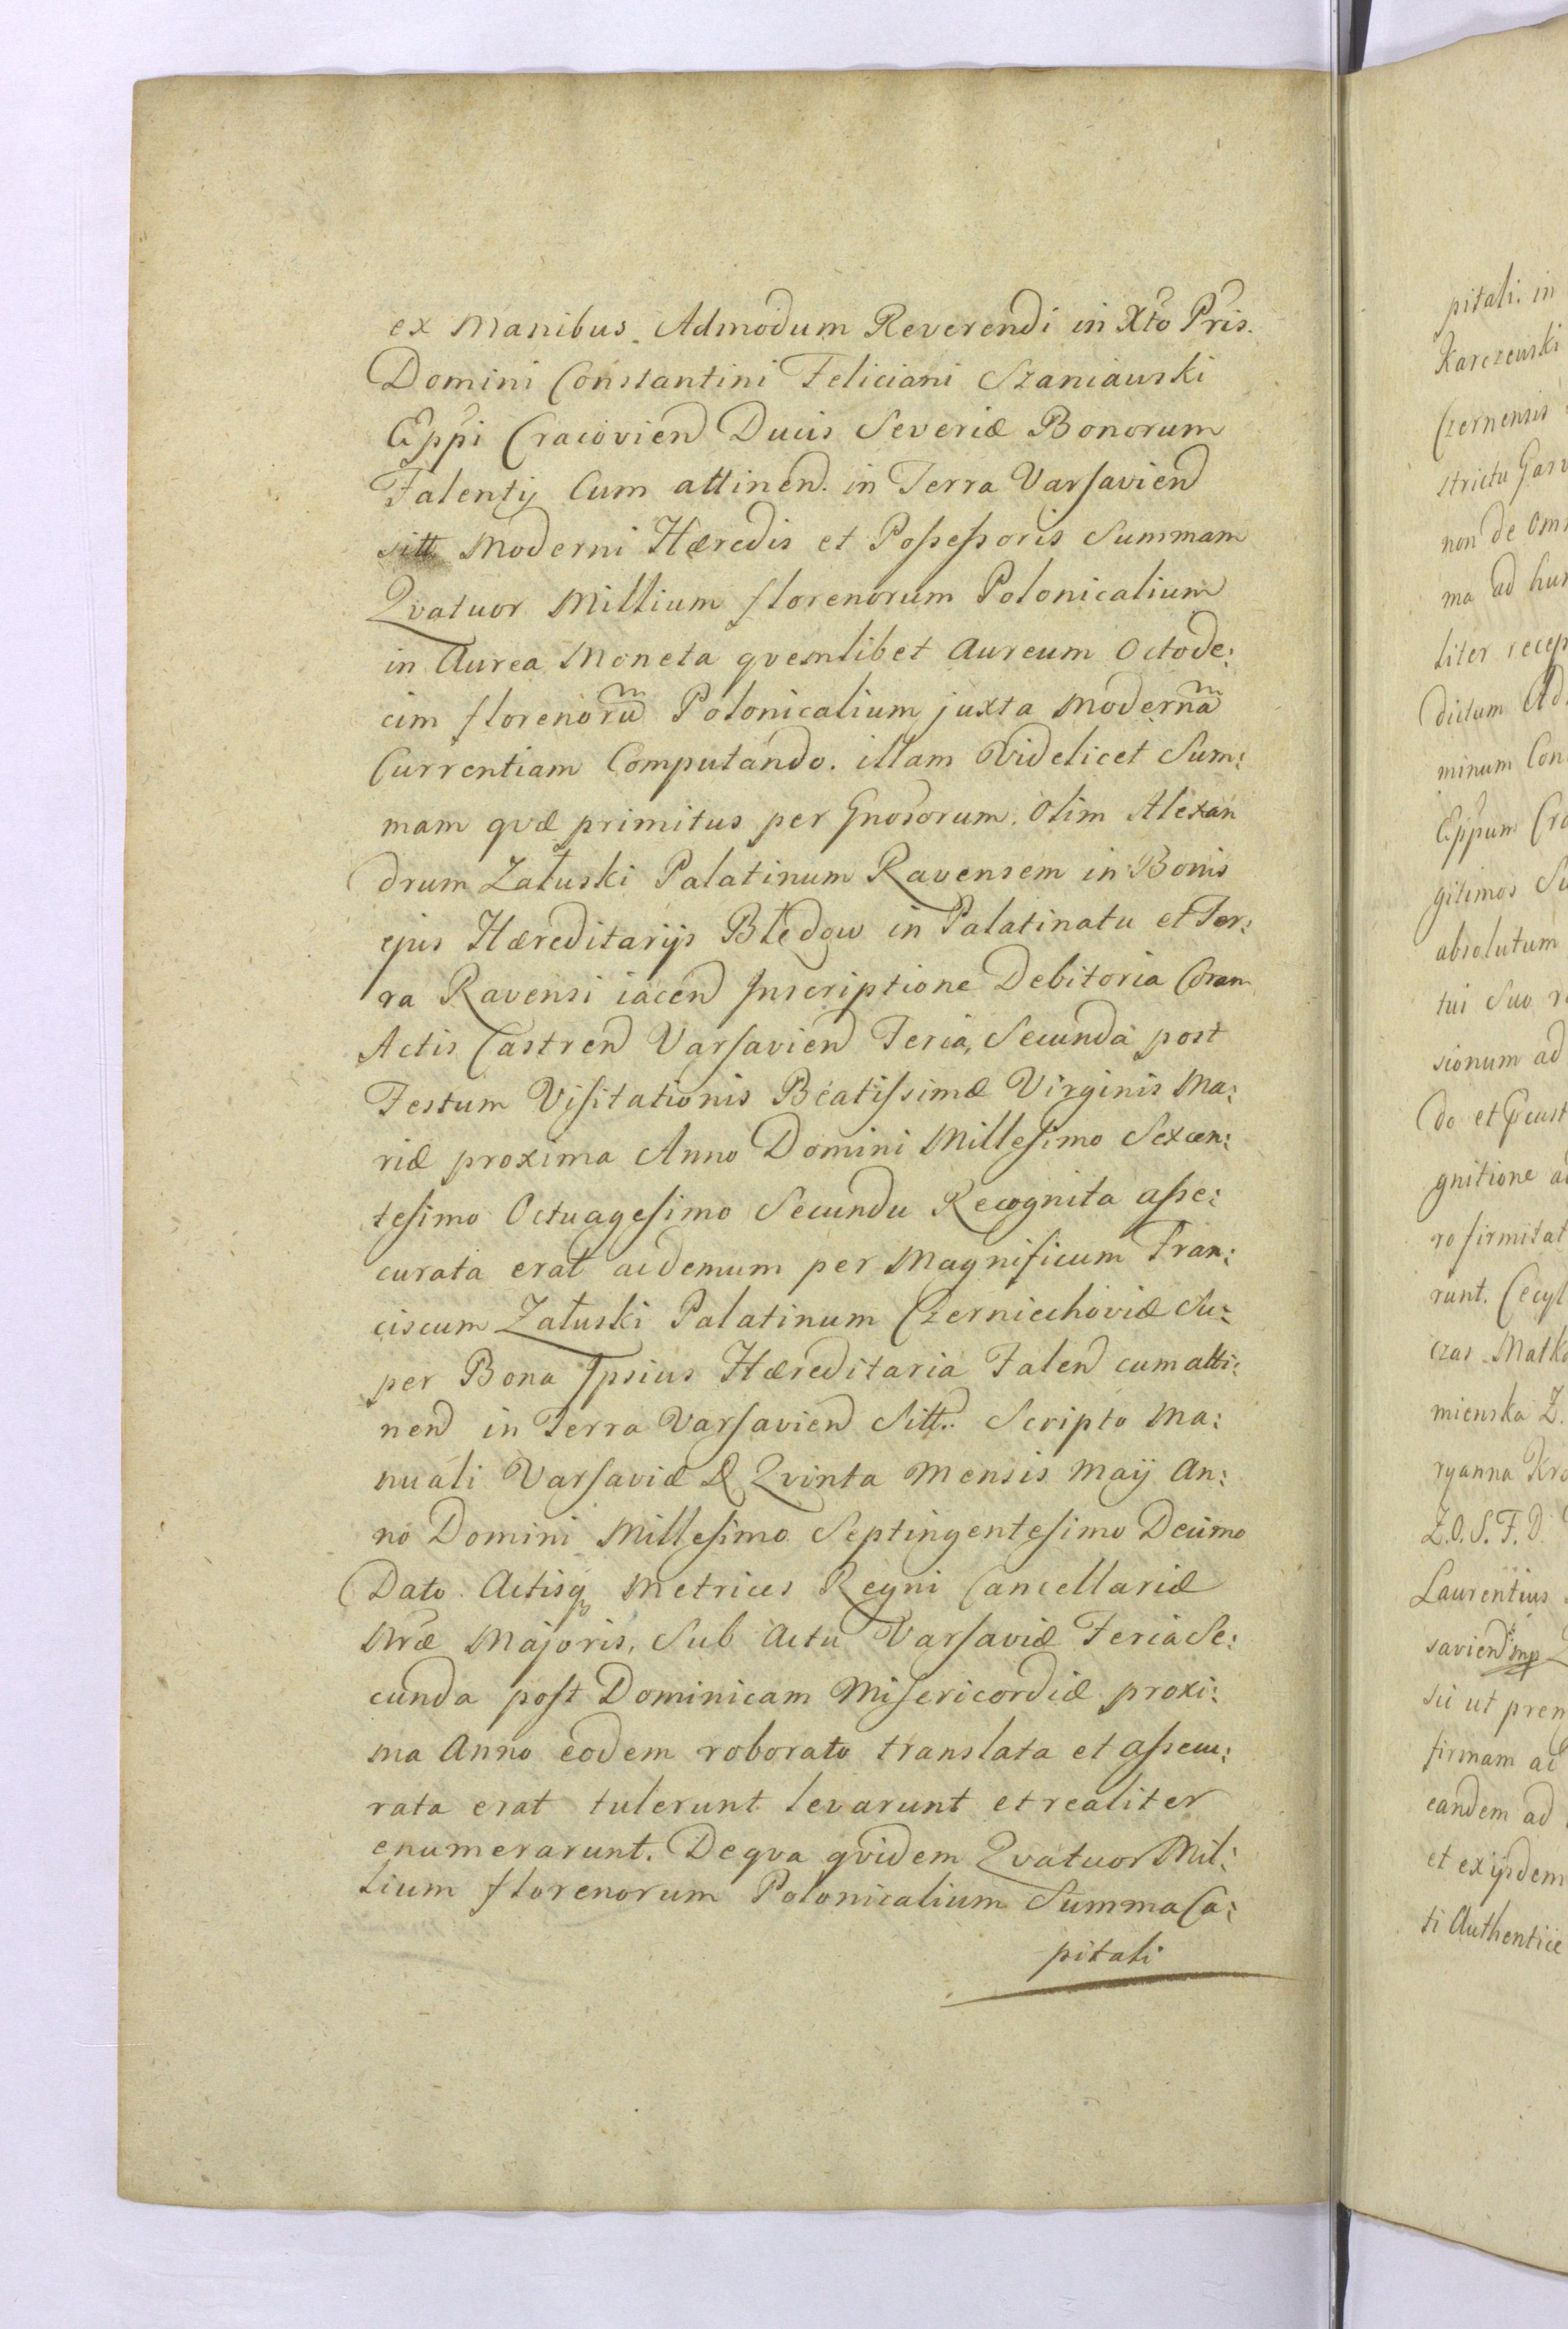 ex Manibus Admodum Reverendi in Xto Pris.
Domini Constantini Feliciani Szaniawski
Eppi Cracovien Ducis Severiæ Bonorum
Falenty Cum attinen. in Terra Varsavien
sitt Moderni Hæredis et Possessoris Summam
Qvatuor Millium florenorum Polonicalium
in Aurea Moneta qvemlibet Aureum Octode:
cim florenorũ Polonicalium juxta Modernã
Currentiam Computando. illam Videlicet Sum:
mam qvæ primitus per Gnosorum. Olim Alexan
drum Załuski Palatinum Ravensem in Bonis
ejus Hæreditarijs Błedow in Palatinatu et Ter:
ra Ravensi iacen Inscriptione Debitoria Coram
Actis Castren Varsavien Feria Secunda post
Festum Visitationis Beatissimæ Virginis Ma:
riæ proxima Anno Domini Millesimo Sexcen:
tesimo Octuagesimo Secundu Recognita asse:
curata erat ac demum per Magnificum Fran:
ciscum Załuski Palatinum Czerniechoviæ Su:
per Bona Ipsius Hæreditaria Falen cum atti:
nen in Terra Varsavien Sitt. Scripto Ma:
nuali Varsaviæ D Qvinta Mensis Maij An:
no Domini Millesimo Septingentesimo Decimo
Dato Actisq Metrices Regni Cancellariæ
Nræ Majoris, Sub Actu Varsaviæ Feria Se:
cunda post Dominicam Misericordiæ proxi:
ma Anno eodem roborato translata et assecu:
rata erat tulerunt levarunt et realiter
enumerarunt. De qva qvidem Qvatuor Mil:
lium florenorum Polonicalium Summa Ca:
pitali
pitali in
Karczewski
Czernensis
strictu Garv
non de Om
ma ad hu
liter recep
dictum Ad
minum Con
Eppum Cra
gitimos Su
absolutum
tui Suo r
sionum ad
do et
gnitione a
ro firmitat
runt. Cecyl
czas Matk
mienska Z.
ryanna Kro
Z.O.S.F.D.
Laurentius
savien mp
sii ut prem
firmam ac
eandem ad
et exijsdem
ti Authentice